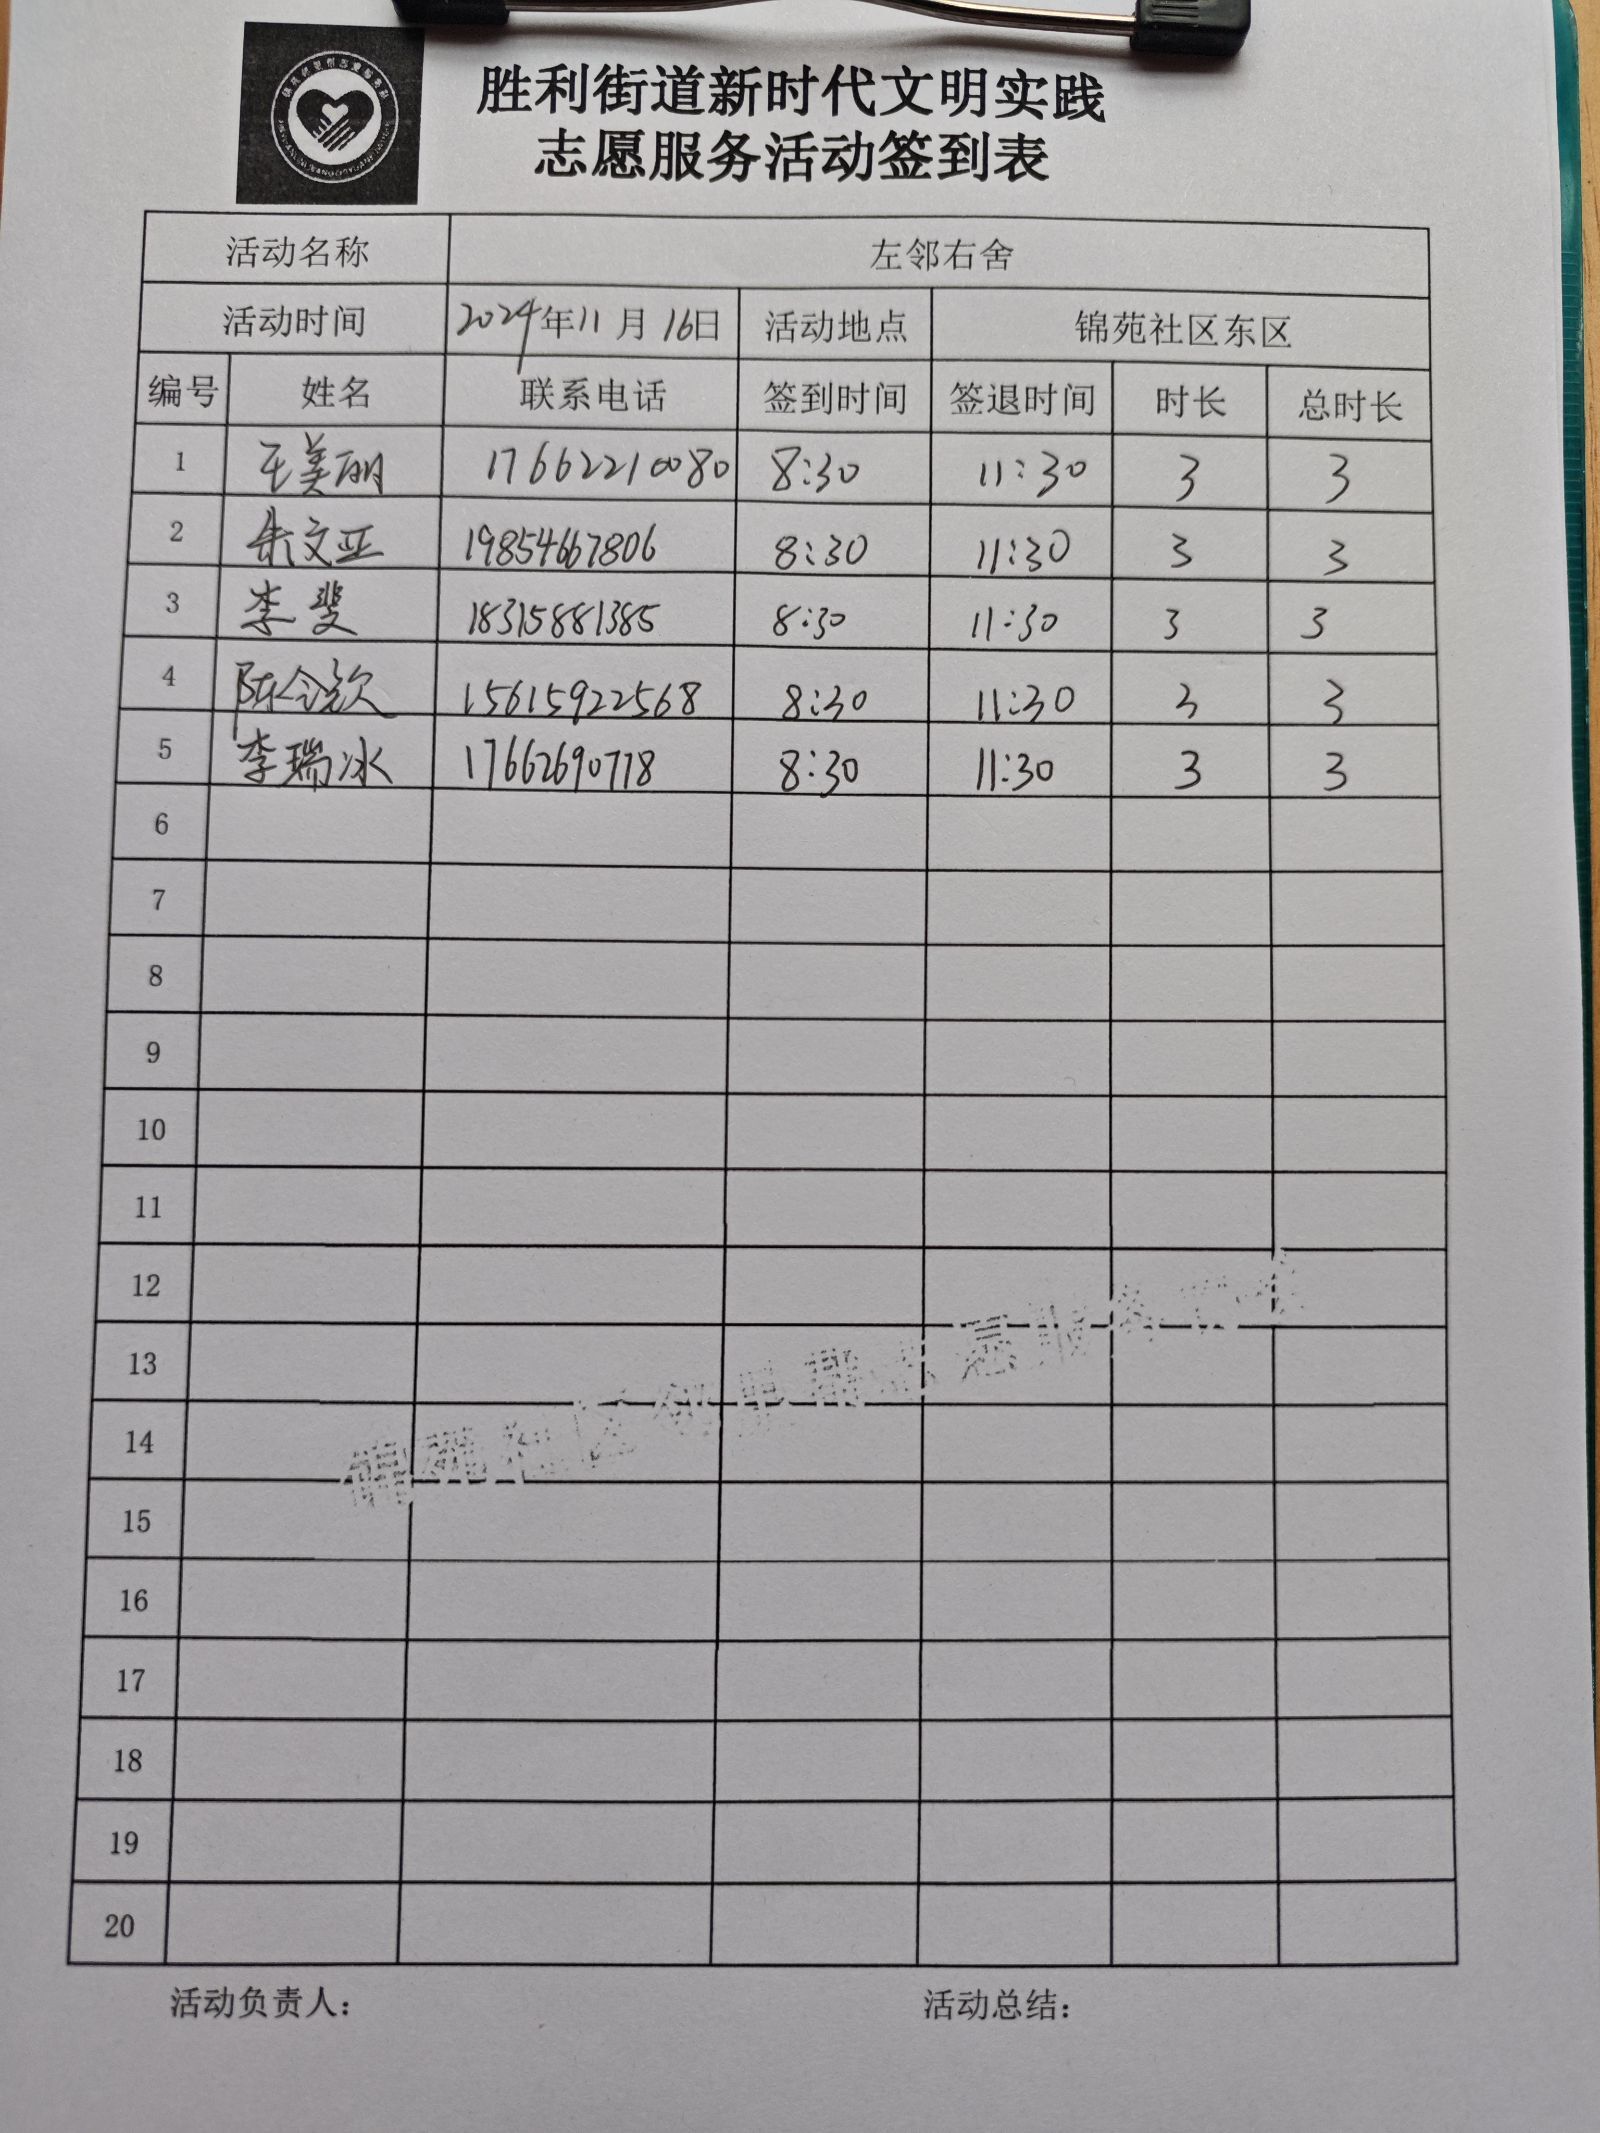 胜利街道新时代文明实践
志愿服务活动签到表
活动名称 左邻右舍
活动时间 2024年11月16日 活动地点 锦苑社区东区
编号 姓名 联系电话 签到时间 签退时间 时长 总时长
1 王美丽 17662210080 8:30 11:30 3 3
2 朱文亚 19854667806 8:30 11:30 3 3
3 李斐 18315881385 8:30 11:30 3 3
4 陈会钦 15615922568 8:30 11:30 3 3
5 李瑞冰 17662690778 8:30 11:30 3 3
6
7
8
9
10
11
12
13
14
15
16
17
18
19
20
锦苑社区邻里帮志愿服务
活动负责人： 活动总结：